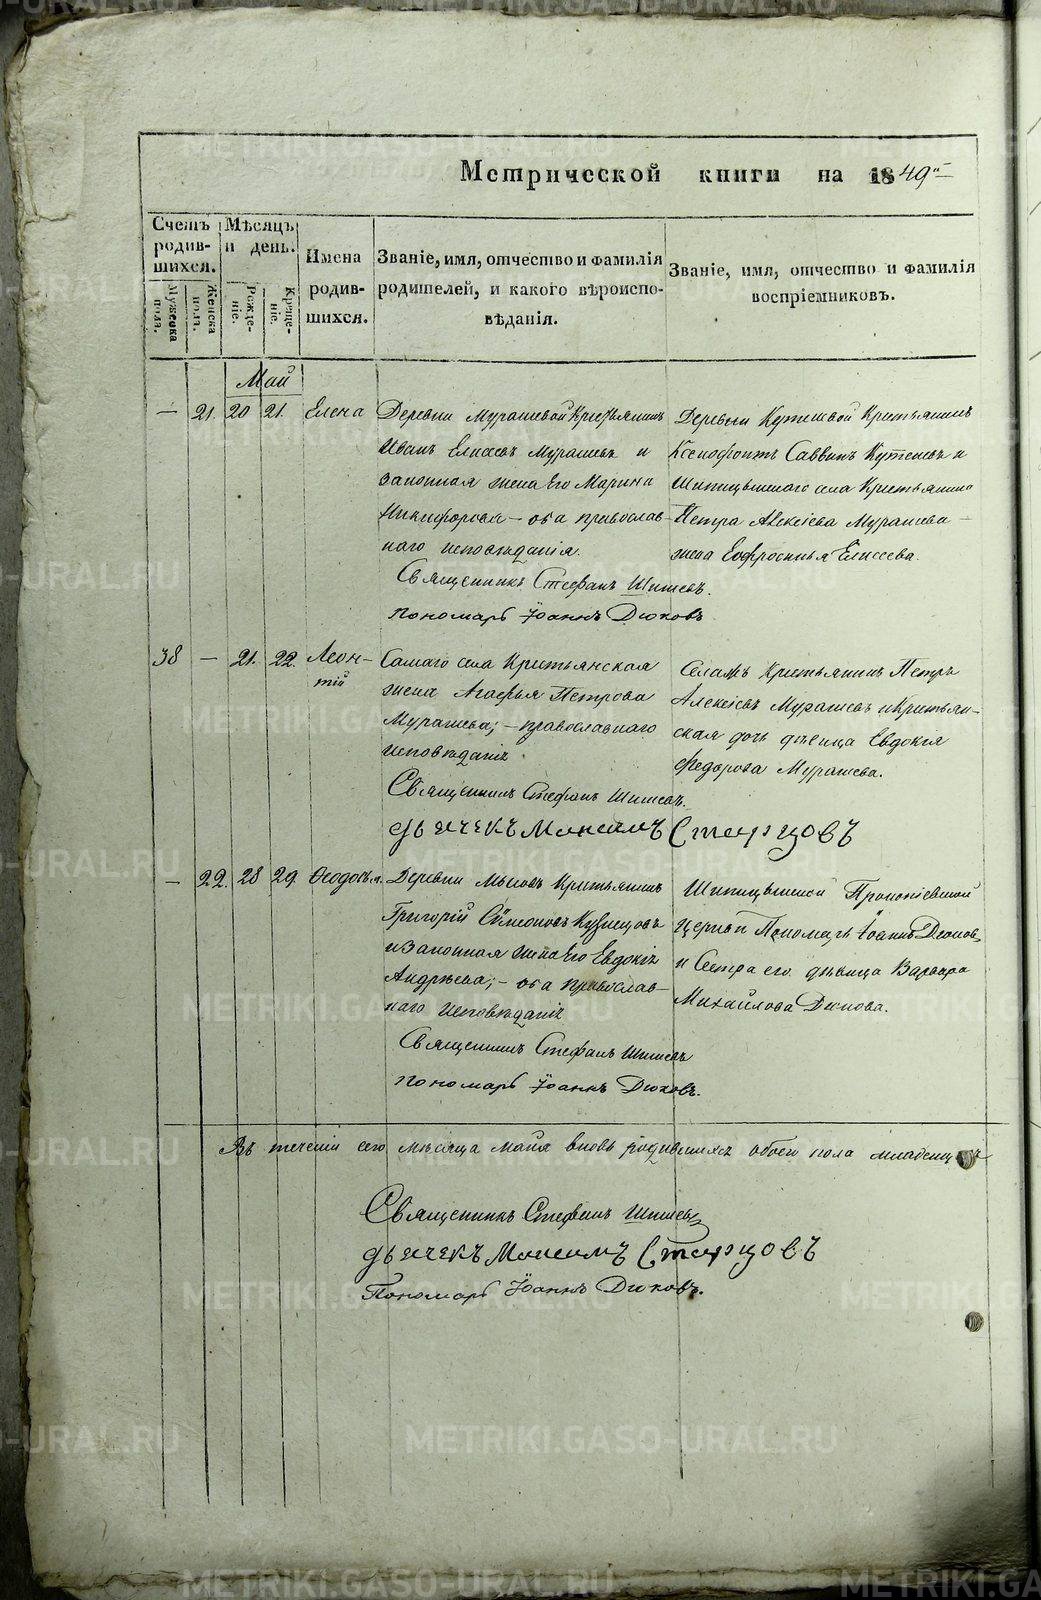 Метрической книги на 1849й
Счетъ родив- шихся.
Мѣсяцъ и день.
Имена родив- шихся.
Званіе, имя, отчество и фамилія родителей, и какого вѣроиспо- вѣданія.
Званіе, имя, отчество и фамилія воспріемниковъ.
Мужеска пола.
Женска пола.
Рожде- ніе.
Креще- ніе.
Май
— 21. 20 21. Елена
Деревни Мурашевой Крестьянинъ
Иванъ Елисѣевъ Мурашевъ и
законная жена его Марина
Никифорова — оба православ-
наго исповѣданія.
Деревни Кутешвой Крестьянинъ
Ксенофонтъ Саввинъ Кутешевъ и
Шипицынскаго села Крестьянина
Петра Алексіева Мурашева —
жена Евфросинья Елисеева.
Священникъ Стефанъ Шишевъ.
пономарь Іоаннъ Дюковъ
38 — 21. 22. Леон-
тій
Самаго села Крестьянская
жена Агафья Петрова
Мурашева; — православнаго
исповѣданія
Села Крестьянинъ Петръ
Алексіевъ Мурашевъ и Крестьян-
ская дочь дѣвица Евдокія
Федорова Мурашева.
Священникъ Стефанъ Шишевъ.
дьячекъ Максимъ Старцовъ
— 22. 28 29. Ѳеодосія
Деревни Мысовъ Крестьянинъ
Григорій Симеоновъ Кузнецовъ
и законная жена его Евдокія
Андрѣева; — оба православ-
наго исповѣданія
Шипицынской Прокопіевской
церкви Пономарь Іоаннъ Дюковъ
и Сестра его дѣвица Варвара
Михайлова Дюкова.
Священникъ Стефанъ Шишевъ
пономарь Іоаннъ Дюковъ.
Въ теченіи сего мѣсяца мая вновь родившихся обоего пола младенцовъ
Священникъ Стефанъ Шишевъ
дьячекъ Максимъ Старцовъ
Пономарь Іоаннъ Дюковъ.
METRIKI.GASO-URAL.RU